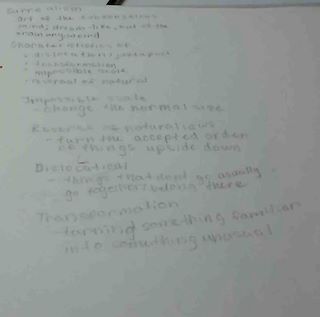 Surrealism
art of the subconscious
mind; dream-like, out of the
Characteristics of
• dislocation/juxtapost
• transformation
• impossible scale
• reversal of natural
Impossible scale
- change the normal size
Reverse of natural laws
- turn the accepted order
of things upside down
Dislocational
- things that dont go usually
go together/belong there
Transformation
- turning something familiar
into something unusual